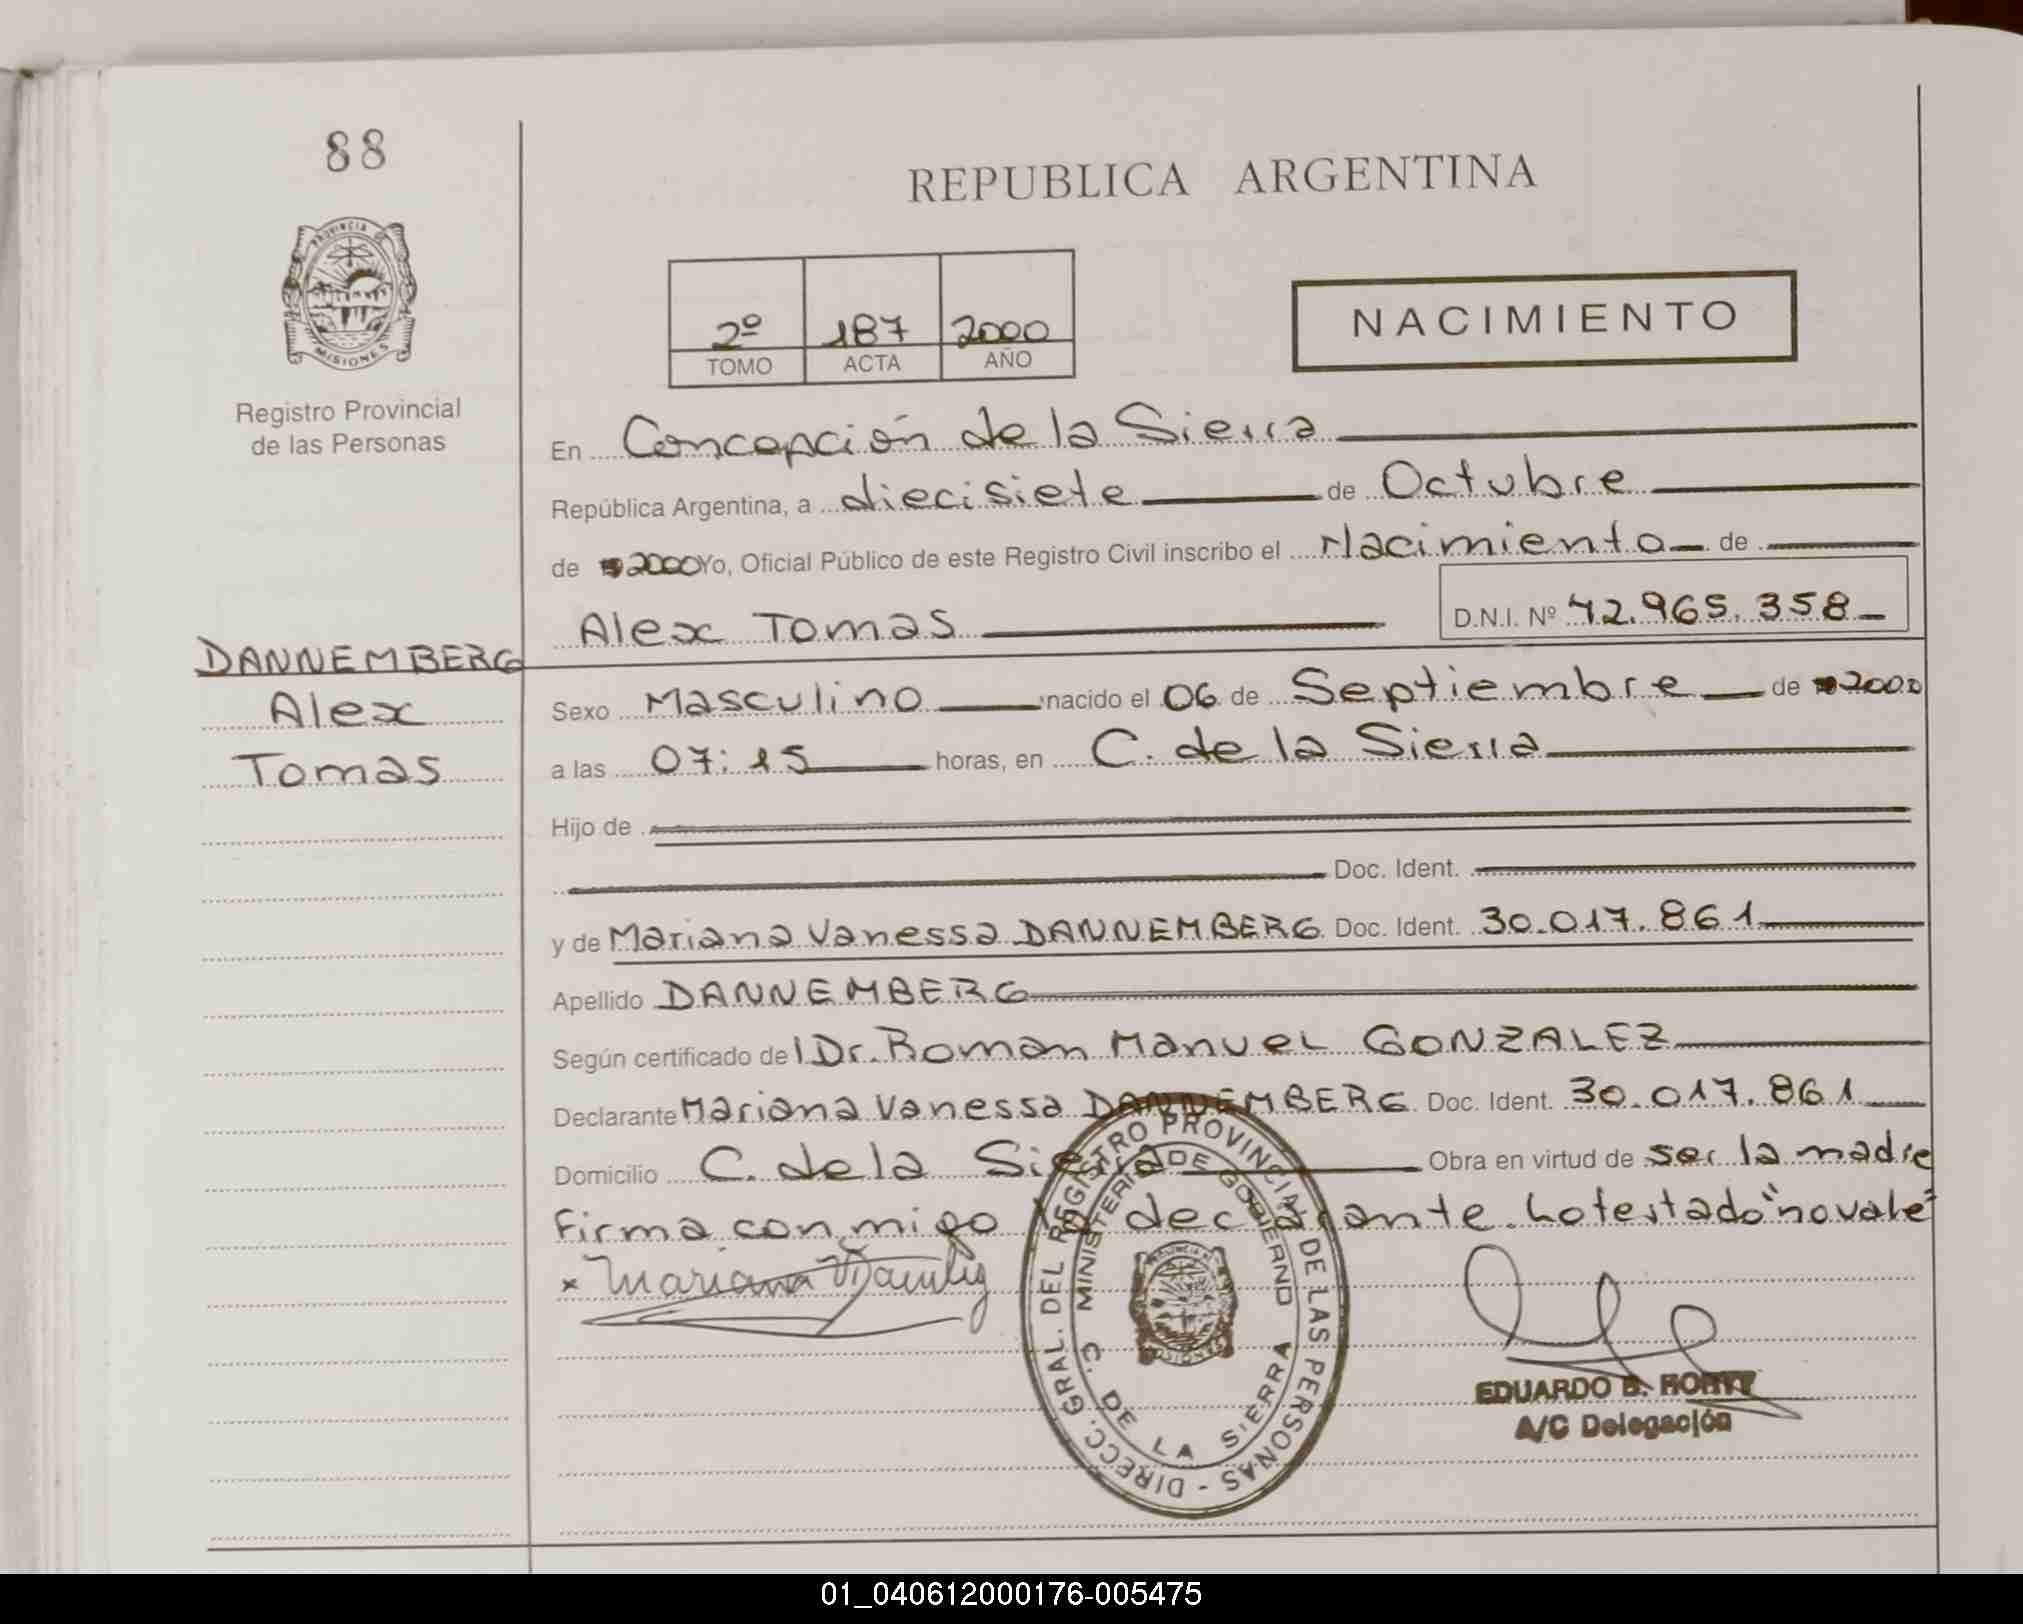 88
REPUBLICA ARGENTINA
PROVINCIA DE
MISIONES
2º 187 2000
TOMO ACTA AÑO
NACIMIENTO
Registro Provincial
de las Personas
En Concepción de la Sierra
República Argentina, a diecisiete de Octubre
de 2000 Yo, Oficial Público de este Registro Civil inscribo el Nacimiento de
Alex Tomas D.N.I. Nº 42.965.358
DANNEMBERG
Alex
Tomas
Sexo Masculino nacido el 06 de Septiembre de 2000
a las 07:15 horas, en C. de la Sierra
Hijo de
Doc. Ident.
y de Mariana Vanessa DANNEMBERG Doc. Ident. 30.017.861
Apellido DANNEMBERG
Según certificado del Dr. Roman Manuel GONZALEZ
Declarante Mariana Vanessa DANNEMBERG Doc. Ident. 30.017.861
Domicilio C. de la Sierra Obra en virtud de ser la madre
Firma conmigo la declarante. Lo testado "no vale"
x Mariana
DIRECC. GRAL. DEL REGISTRO PROVINCIAL DE LAS PERSONAS -
MINISTERIO DE GOBIERNO
C. DE LA SIERRA
EDUARDO B.
A/C Delegación
01_040612000176-005475